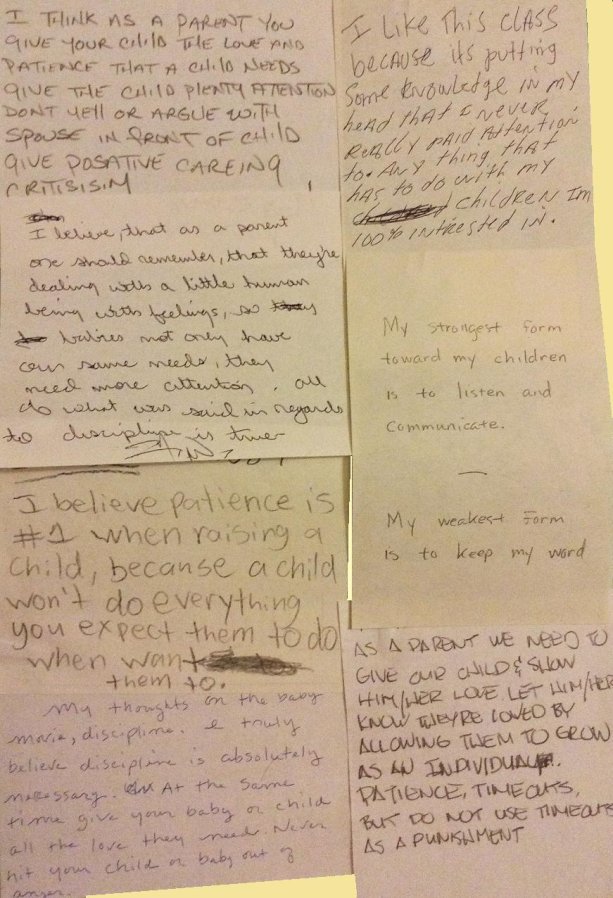 I THINK AS A PARENT YOU
GIVE YOUR CHILD THE LOVE AND
PATIENCE THAT A CHILD NEEDS
GIVE THE CHILD PLENTY ATTENTION
DONT YELL OR ARGUE WITH
SPOUSE IN FRONT OF CHILD
GIVE POSATIVE CAREING
CRITISISIM
I believe, that as a parent
one should remember, that they're
dealing with a little human
being with feelings, so
babies not only have
our same needs, they
need more attention. all
do what was said in regards
to discipline is true
I believe patience is
#1 when raising a
child, because a child
won't do everything
you expect them to do
when want
them to.
My thoughts on the baby
movie, discipline. I truly
believe discipline is absolutely
necessary. At the same
time give your baby or child
all the love they need. Never
hit your child or baby out of
anger.
I like this CLASS
because its putting
Some knowledge in my
head that I never
Really paid attention
to. Any thing that
has to do with my
children Im
100% intrested in.
My strongest form
toward my children
is to listen and
communicate.
My weakest form
is to keep my word
AS A PARENT WE NEED TO
GIVE OUR CHILD & SHOW
HIM/HER LOVE. LET HIM/HER
KNOW THEY'RE LOVED BY
ALLOWING THEM TO GROW
AS AN INDIVIDUAL.
PATIENCE, TIMEOUTS,
BUT DO NOT USE TIMEOUTS
AS A PUNISHMENT